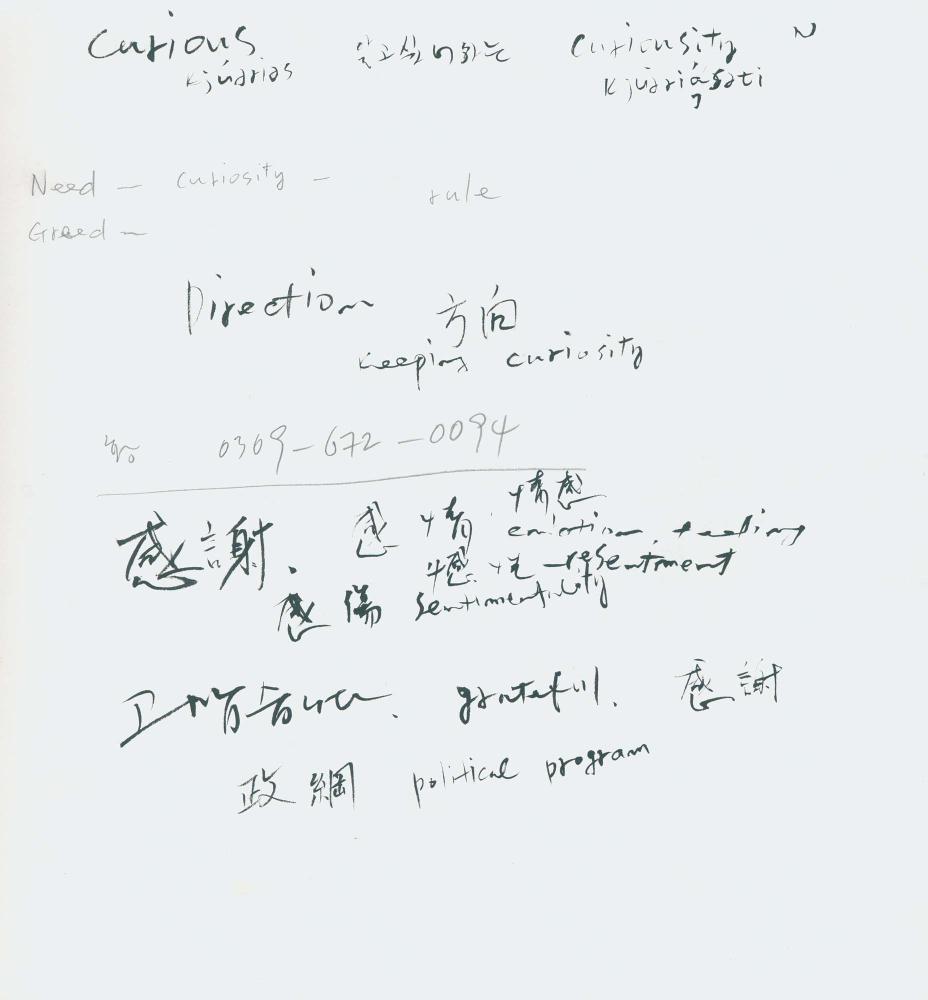 Curious 알고싶어하는 Curiousity N
kjúəriəs kjùəriásəti
Need - curiosity - rule
Greed -
Direction 方向
keeping curiosity
0309-672-0094
感謝. 感情. 情感
emotion, feeling
憾 resentment
感傷 sentimentality
고맙습니다. grateful. 感謝
政綱 political program